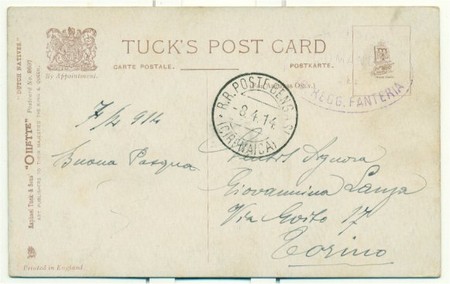 TUCK'S POST CARD
By Appointment.
CARTE POSTALE.
POSTKARTE.
"DUTCH NATIVES."
"OILETTE"
Raphael Tuck & Sons'
R.R. POSTE BENGASI
-8.4.14
(CIRENAICA)
REGG. FANTERIA
7/4 914
Buona Pasqua
Signora
Giovannina Lanza
Via Goito 17
Torino
Printed in England.